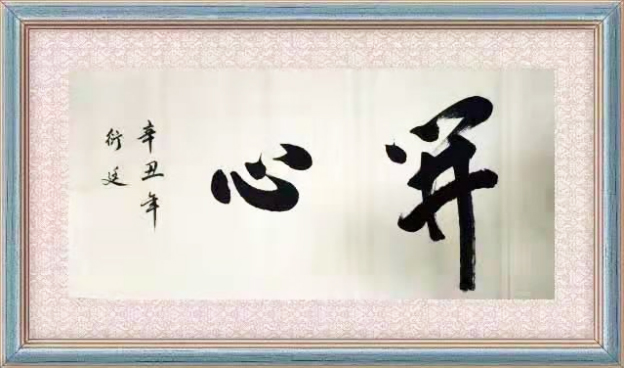 開心
辛丑年
衍廷